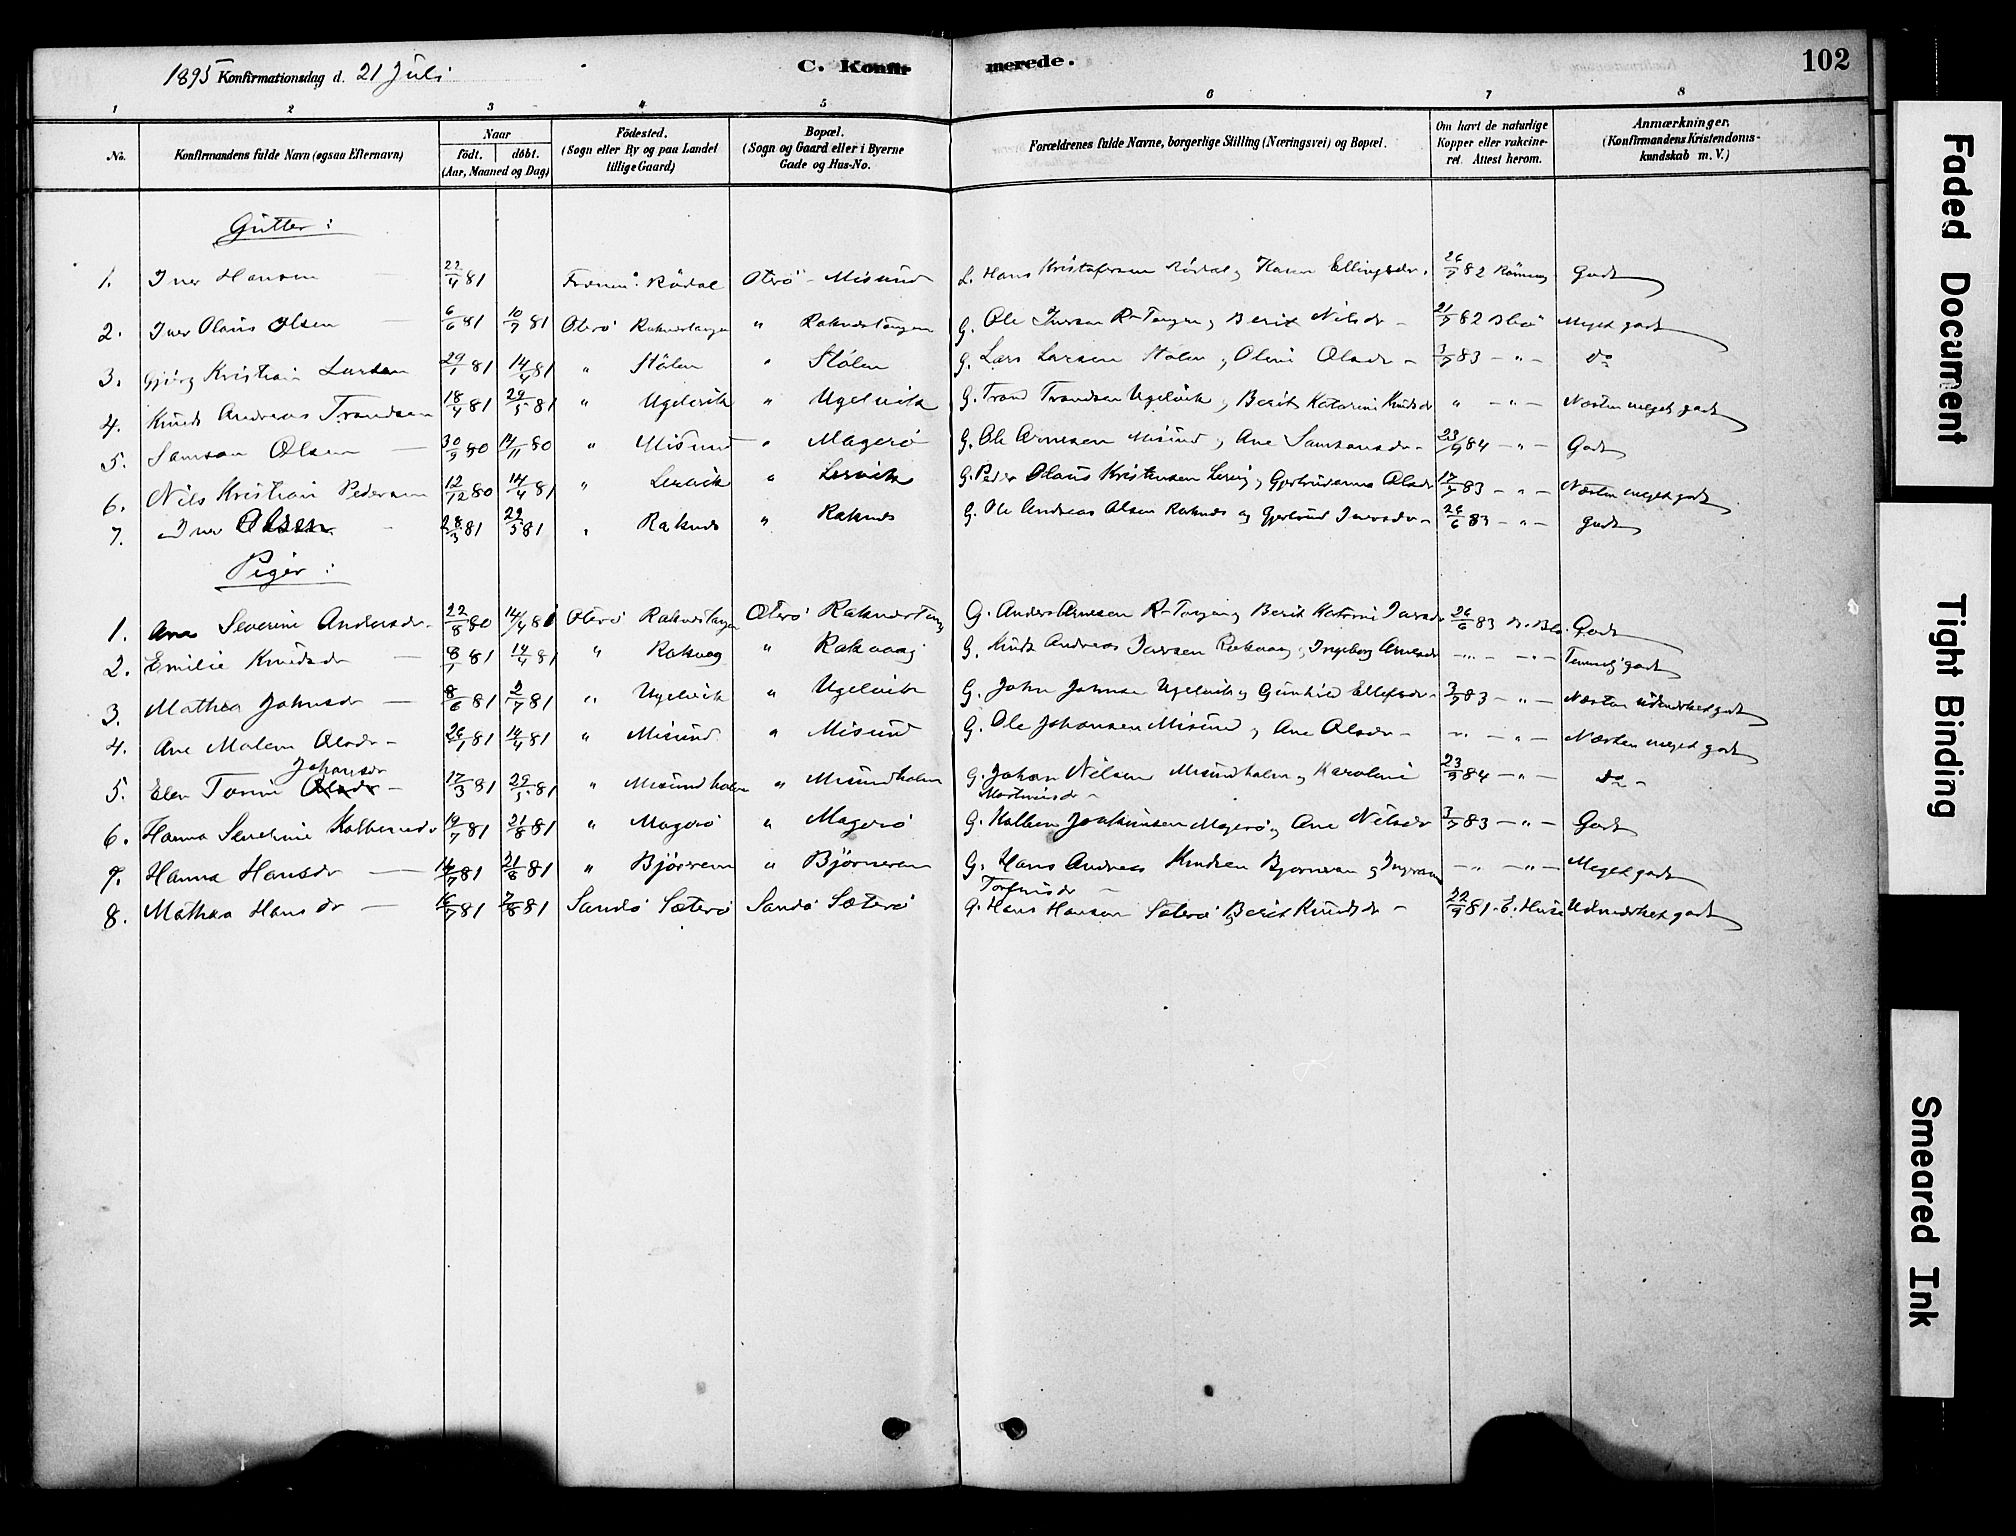 1895 Konfirmationsdag d. 21 Juli C. Konfirmerede. 102
1 2 3 4 5 6 7 8
No. Konfirmandens fulde Navn (ogsaa Efternavn) Naar födt. döbt. (Aar, Maaned og Dag) Födested. (Sogn eller By og paa Landet tillige Gaard) Bopæl. (Sogn og Gaard eller i Byerne Gade og Hus-No. Forældrenes fulde Navne, borgerlige Stilling (Næringsvei) og Bopæl. Om havt de naturlige Kopper eller vakcineret. Attest herom. Anmærkninger. (Konfirmandens Kristendomskundskab m. V.)
Gutter:
1. Iver Hansen 22/4 81 Rödal Oterö Misund L. Hans Kristofersen Rödal, Karen Ellingsdr. 26/7 82 Godt
2. Iver Olaus Olsen 6/6 81 10/7 81 Oterö Raknestangen " Raknestangen G. Ole Iversen R-Tangen, Berit Nilsdr - 21/7 82 Meget godt
3. Kristian Larsen 29/1 81 14/4 81 " Stölen " Stölen G. Lars Larsen Stölen, Oline Olsdr - 3/7 83 - " - do
4. Knud Andreas Trondsen 18/4 81 29/5 81 " Ugelvik " Ugelvik G. Trond Trondsen Ugelvik, Berit Katarine Knudsdr " - " - Næsten meget godt
5. Samson Olsen 30/9 80 14/11 80 " Misund " Magerö G. Ole Arnesen Misund, Ane Samsonsdr - 23/9 84 - " - Godt
6. Nils Kristian Pedersen 12/12 80 14/4 81 " Lervik " Lervik G. Peder Olaus Kristensen Lervig, Gjertrudanna Olsdr 17/7 83 - " - Næsten meget godt
7. Iver Olsen 28/3 81 29/5 81 " Raknes " Raknes G. Ole Andreas Olsen Raknes og Gjertrud Iversdr - 26/6 83 - " - godt
Piger:
1. Ane Severine Andersdr. 22/8 80 14/4 81 Oterö Raknestangen Oterö Raknestang G. Anders Arnesen R-Tangen, Berit Katrine Iversdr 26/6 83 Godt
2. Emilie Knudsdr 8/1 81 14/4 81 " Rakvag " Rakvaag G. Knut Andreas Iversen Rakvaag, Ingeborg Arnesdr - " - - " - Temmelig godt
3. Mathea Johnsdr 8/6 81 3/7 81 " Ugelvik " Ugelvik G. John Johnsen Ugelvik, Gunhild Ellefsdr - 3/7 83 - " - Næsten udmerket godt
4. Ane Malene Olsdr - 26/1 81 14/4 81 " Misund " Misund G. Ole Johansen Misund, Ane Olsdr - " - " - Næsten meget godt
Johansdr
5. Elen Tomine Olsdr - 17/3 81 29/5 81 " Misundholm " Misundholm G. Johan Nilsen Misundholm, Karoline Martinusdr - 23/9 84 - " - do -
6. Hanna Serefine Kolbensdr 14/7 81 21/8 81 " Magerö " Magerö G. Kolben Joakimsen Magerö, Ane Nilsdr 3/7 83 - " - Godt
7. Hanna Hansdr 14/7 81 21/8 81 " Björnrem " Björnerem G. Hans Andreas Knudsen Bjørnrem, Torfinsdr - - " - - " - Meget godt
8. Mathea Hansdr - 16/7 81 7/8 81 Sandö Sæterö Sandö Sæterö G. Hans Hansen Sæterö, Berit Knudsdr - 22/9 81 Huse Udmerket godt
Faded Document
Tight Binding
Smeared Ink